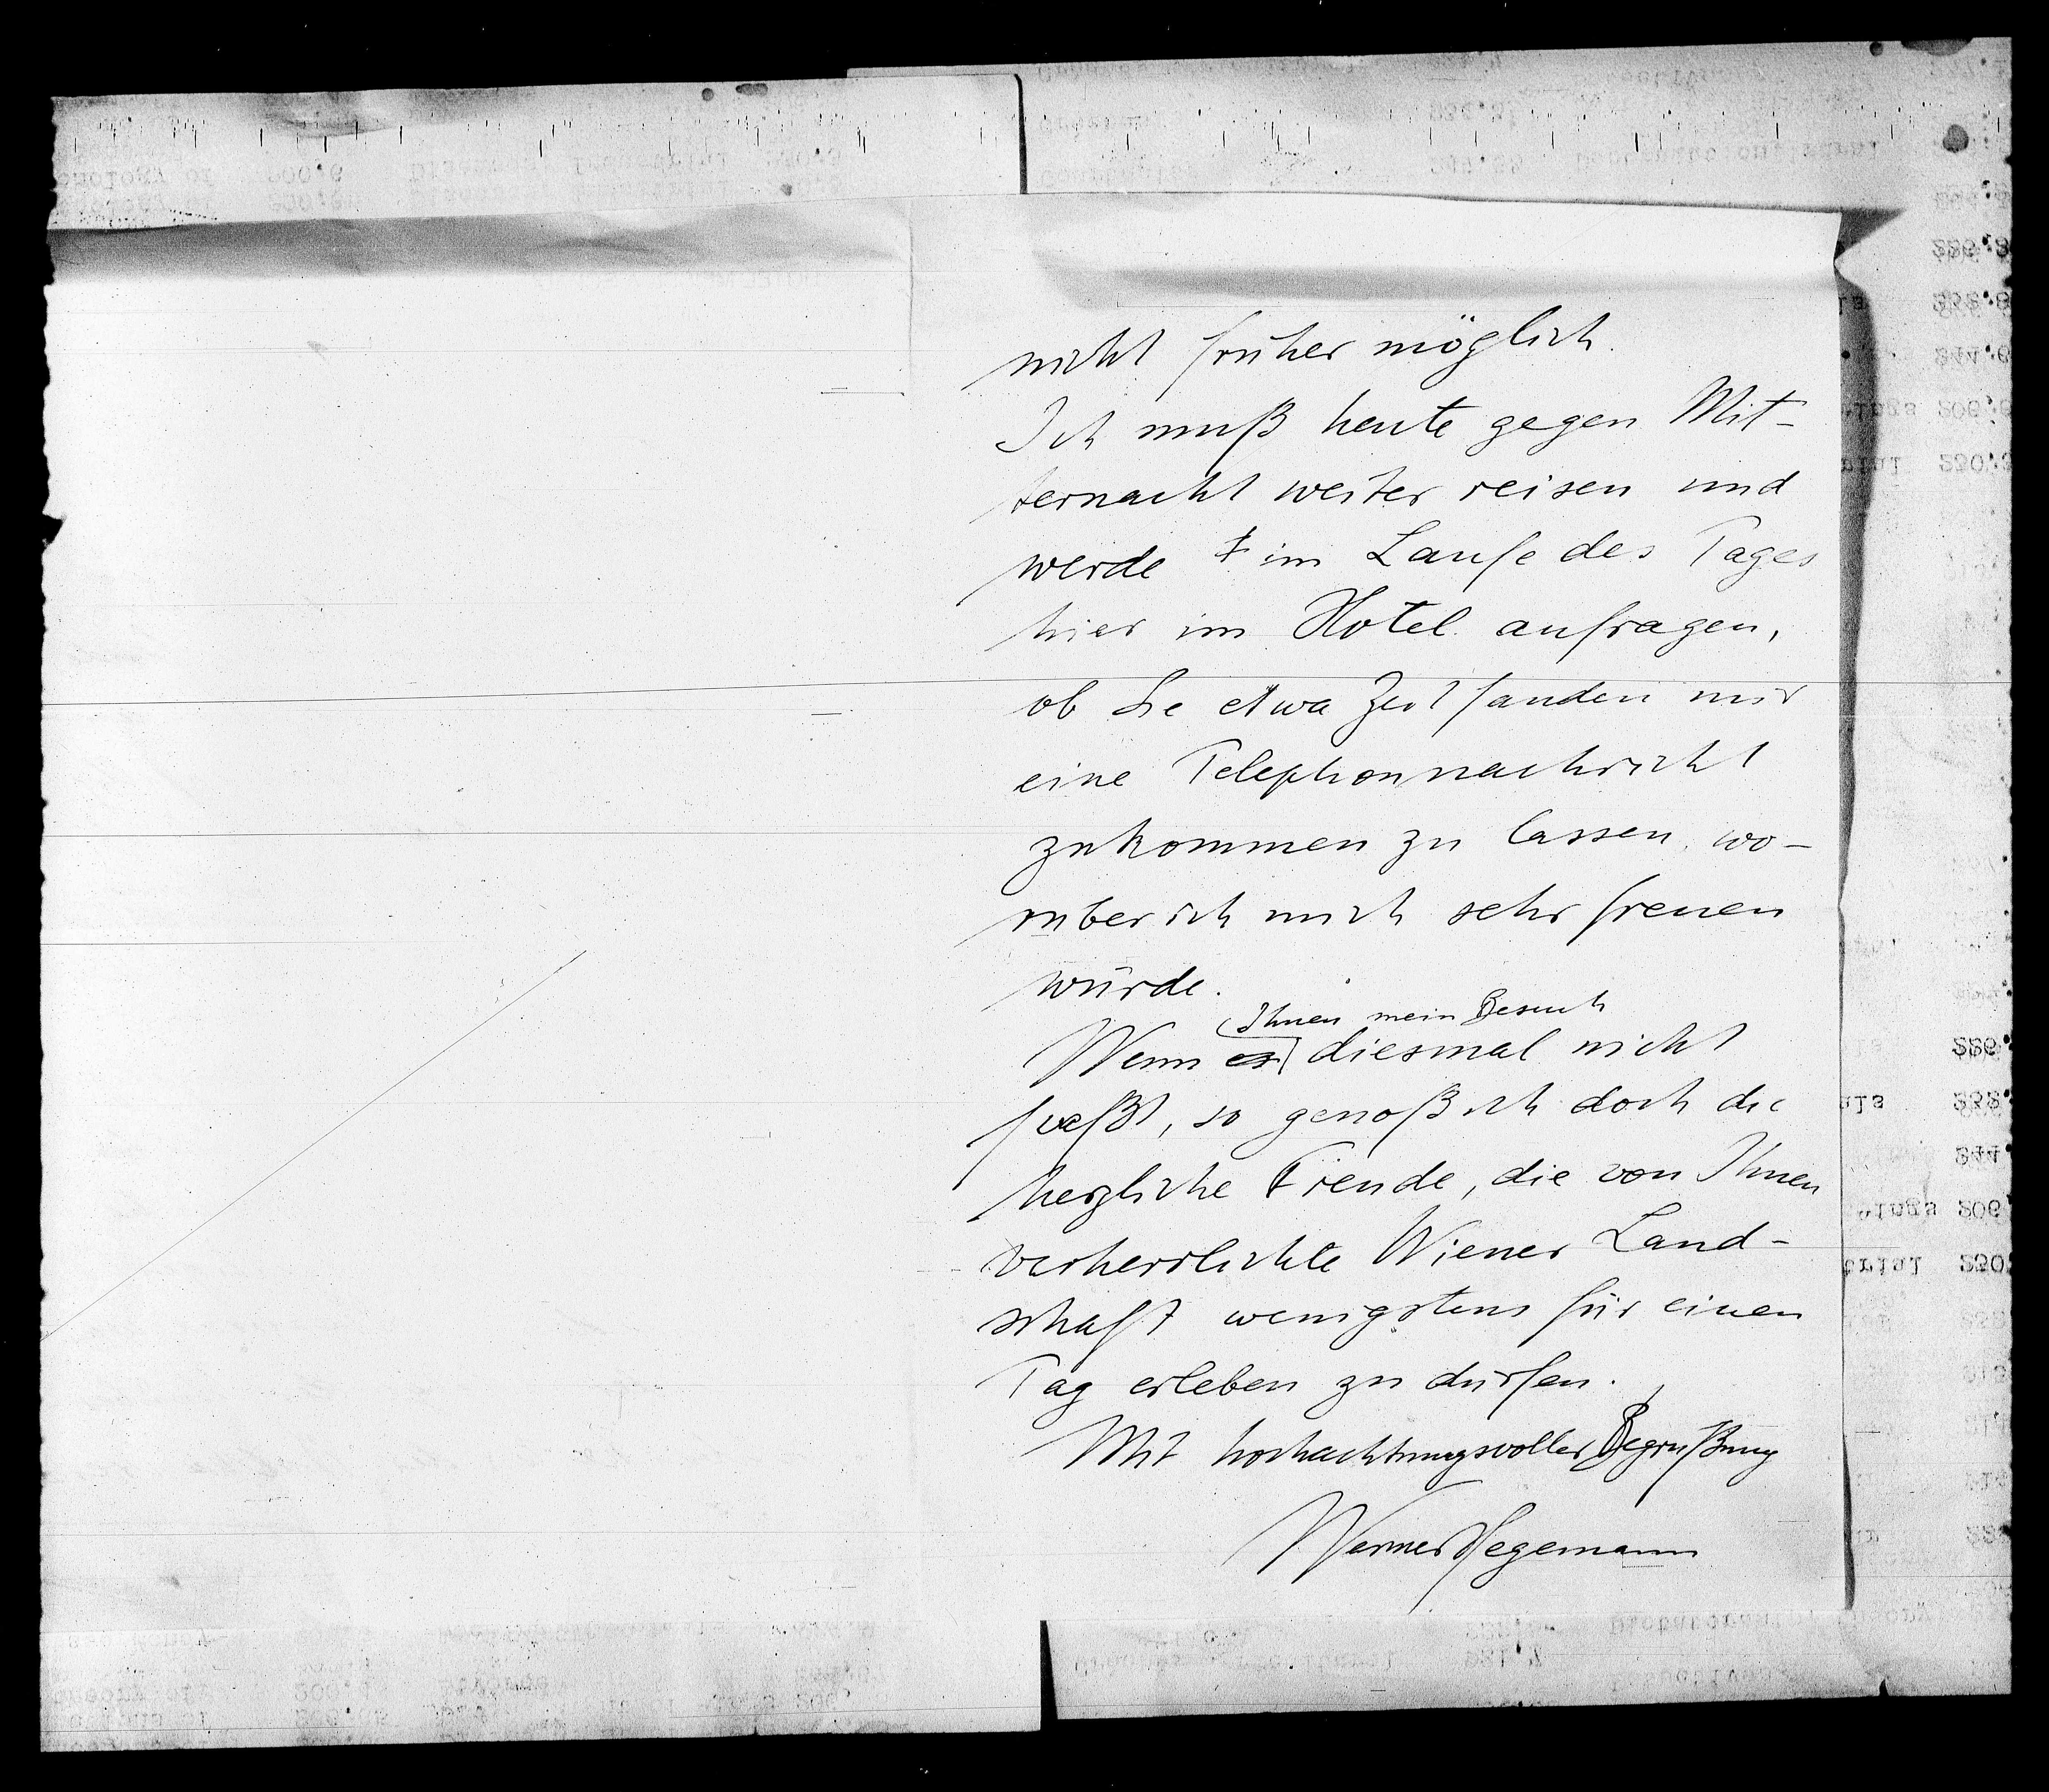 nicht früher möglich.
Ich muß heute gegen Mit-
ternacht weiter reisen und
werde im Laufe des Tages
hier im Hotel anfragen,
ob Sie etwa Zeit fanden mir
eine Telephonnachricht
zukommen zu lassen, wo-
rüber ich mich sehr freuen
würde.
Ihnen mein Besuch
Wenn es diesmal nicht
paßt, so genoß ich doch die
herzliche Freude, die von Ihnen
verherrlichte Wiener Land-
schaft wenigstens für einen
Tag erleben zu dürfen.
Mit hochachtungsvoller Begrüßung
Werner Hegemann